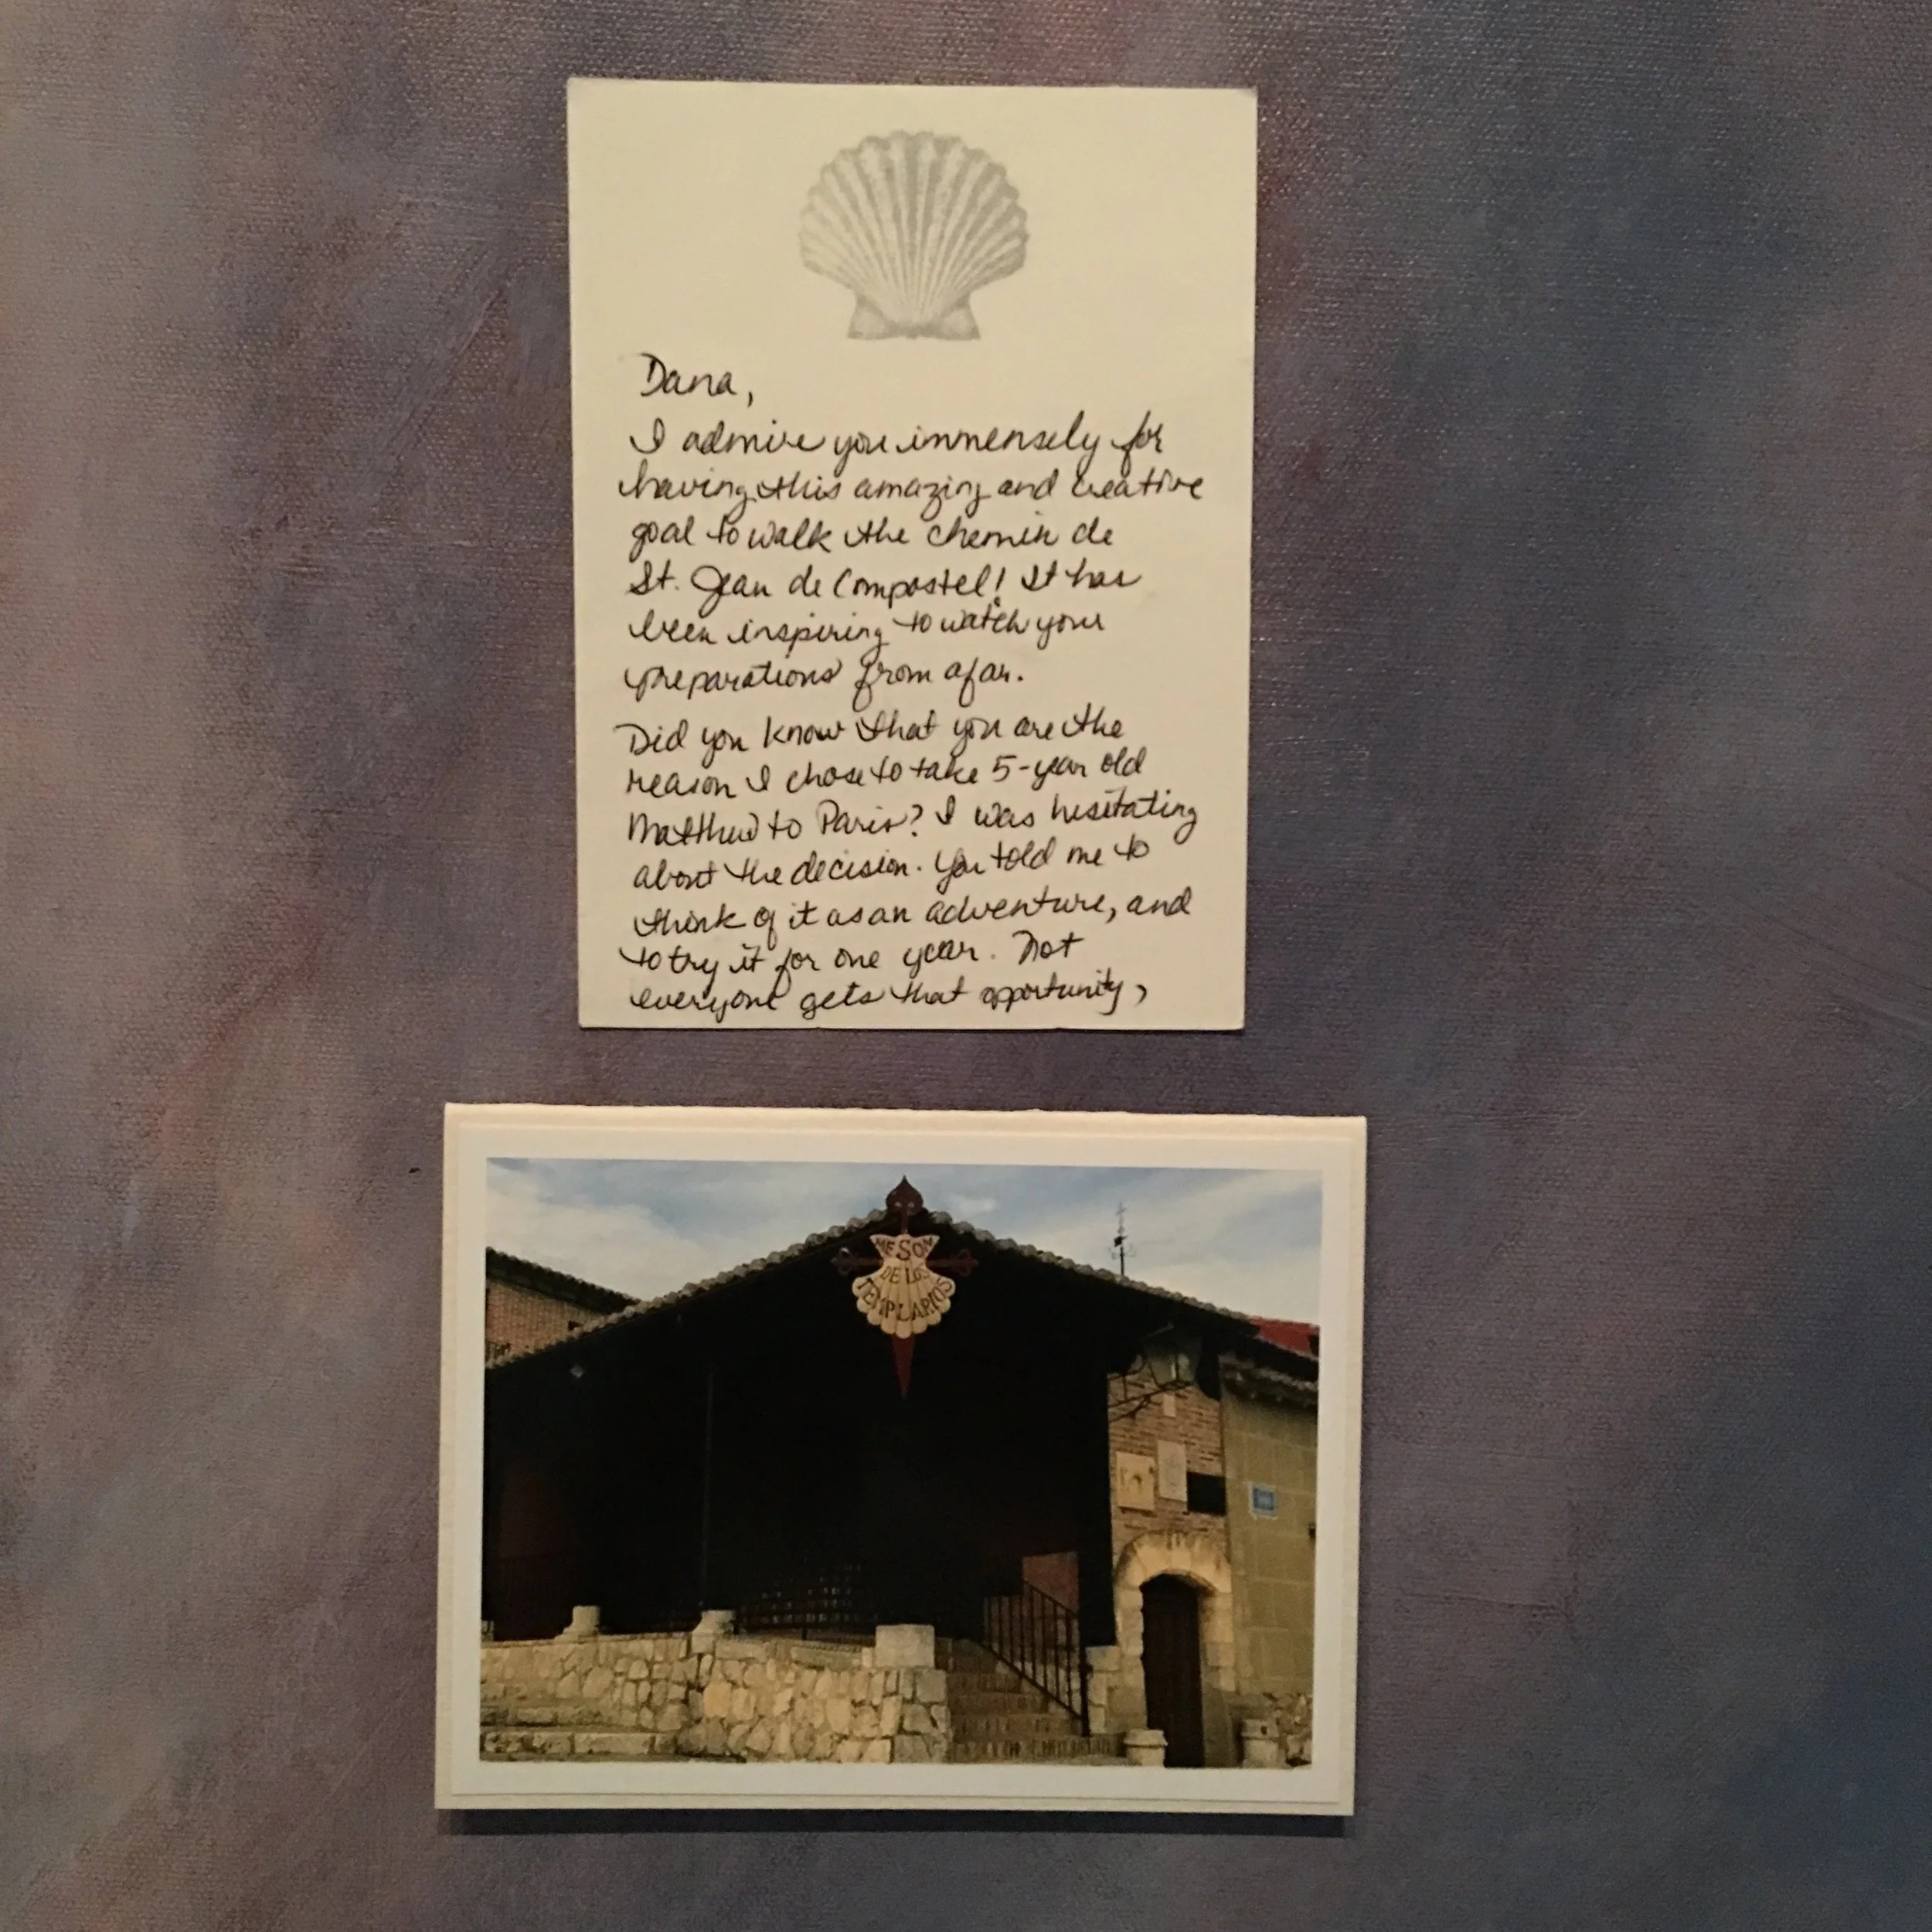 Dana,
I admire you immensely for
having this amazing and creative
goal to walk the chemin de
St. Jean de Compostel! It has
been inspiring to watch your
preparations from afar.
Did you know that you are the
reason I chose to take 5-year old
Matthew to Paris? I was hesitating
about the decision. You told me to
think of it as an adventure, and
to try it for one year. Not
everyone gets that opportunity,
MESON
DE LOS
TEMPLARIOS